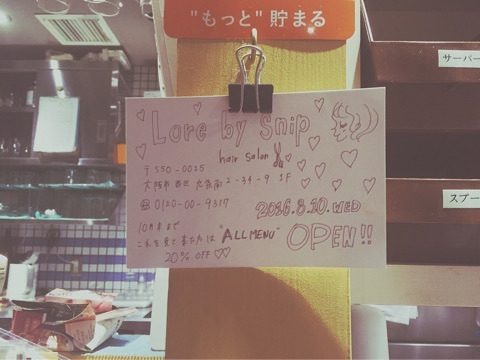 "もっと"貯まる
サーバー
Lore by Snip
hair salon
〒550-0025
大阪市西区九条南2-34-9 1F
☎ 0120-00-9317
2016.8.10. WED
10月末まで
これを見て来た方は "ALL MENU"
20% OFF ♡♡
OPEN!!
スプー